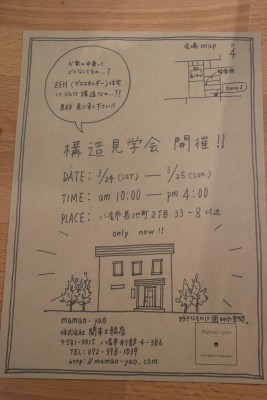 会場 map
N
4
お家の中身って
どうなってるの…?
ZEH(ゼロエネルギー)住宅
って どんな 構造なの…??
是非 見に来て下さい!!
here♪
構造見学会 開催!!
DATE: 3/24 (SAT) — 3/25 (SUN)
TIME: am 10:00 — pm 4:00
PLACE: 八尾市長池町2丁目 33-8 付近
only now!!
maman-yao
株式会社 関本工務店
〒581-0015 八尾市刑部 4-386
TEL: 072-998-1039
http://maman-yao.com
好きなものに囲まれた空間。
maman-yao